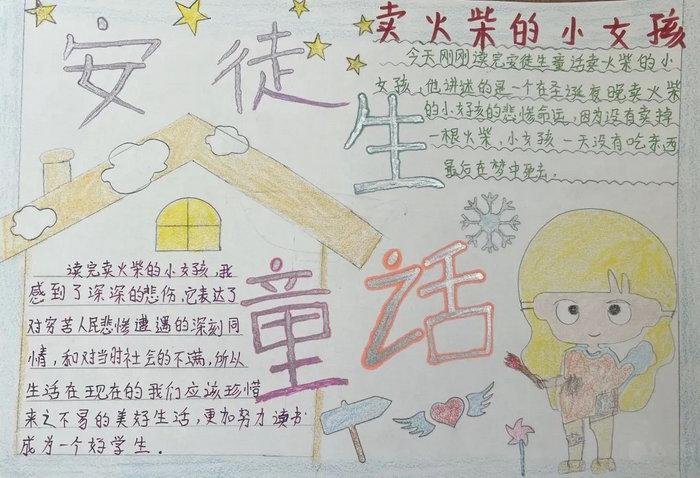 安徒生童话
卖火柴的小女孩
今天刚刚读完安徒生童话卖火柴的小
女孩，他讲述的是一个在圣诞夜晚卖火柴
的小女孩的悲惨命运，因为没有卖掉
一根火柴，小女孩一天没有吃东西
最后在梦中死去.
读完卖火柴的小女孩,我
感到了深深的悲伤,它表达了
对穷苦人民悲惨遭遇的深刻同
情，和对当时社会的不满,所以
生活在现在的我们应该珍惜
来之不易的美好生活，更加努力读书
成为一个好学生.